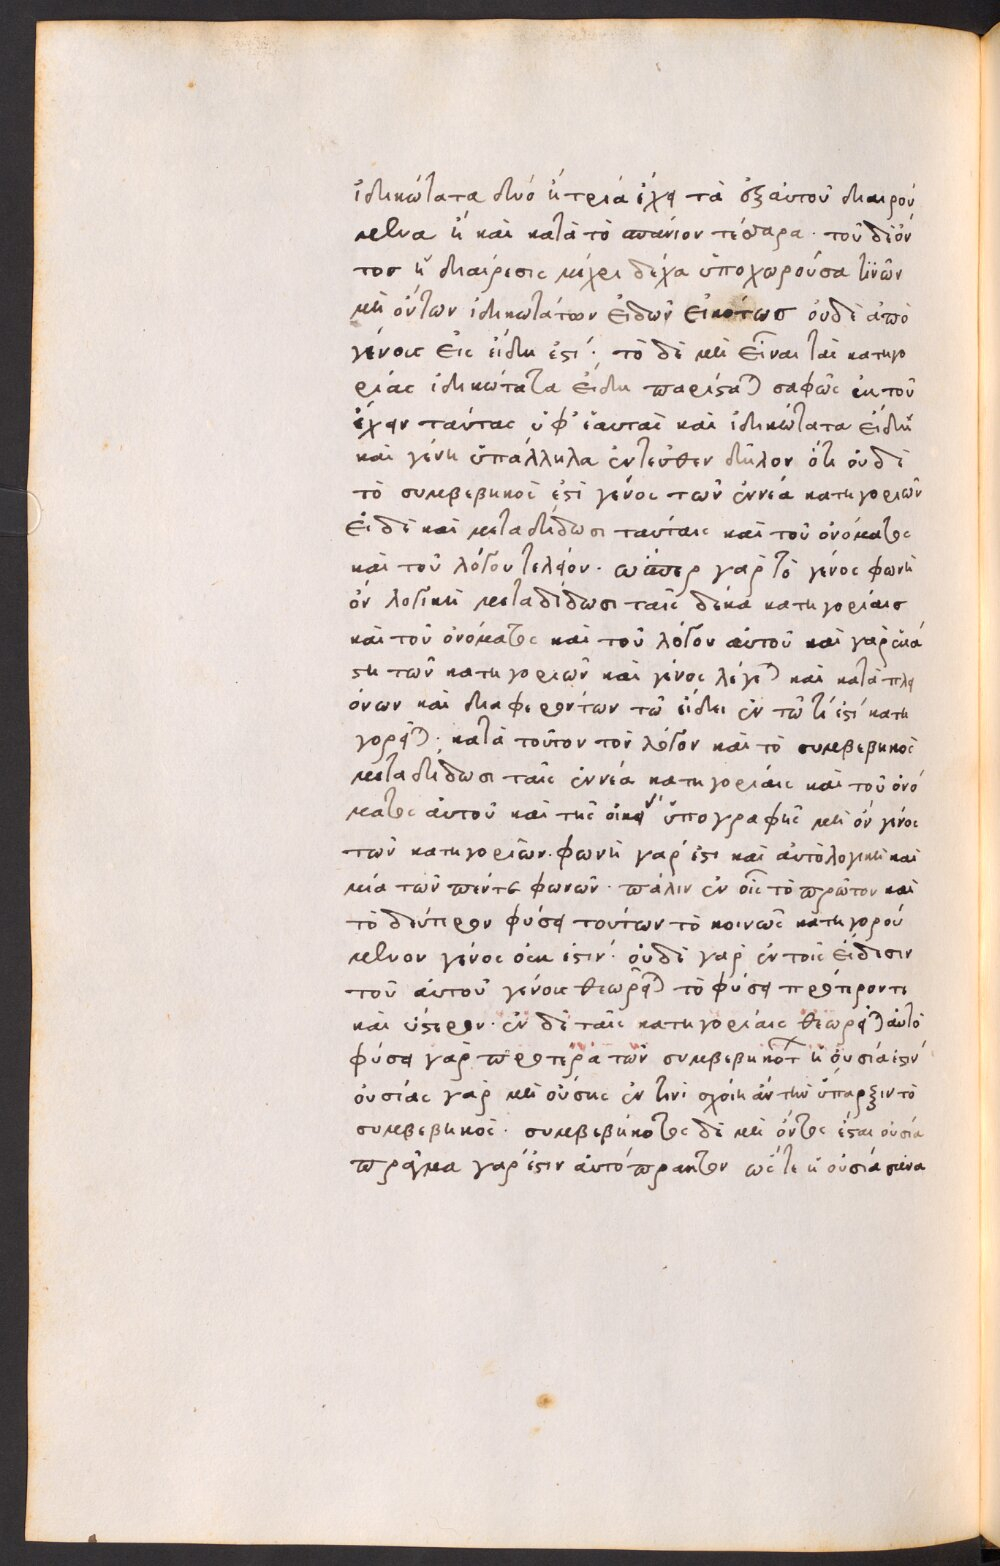 ἰδικώτατα δύο ἢ τρία ἔχει τὰ ἐξ αὐτοῦ διαιρού
μενα ἢ καὶ κατὰ τὸ σπάνιον τέσσαρα· τοῦ δὲ ὄν
τος ἡ διαίρεσις μέχρι δέκα ὑποχωροῦσα τινῶν
μὴ ὄντων ἰδικωτάτων εἰδῶν εἰκότως οὐδὲ ἀπὸ
γένους εἰς εἴδη ἐστί· τὸ δὲ μὴ εἶναι τὰς κατηγο
ρίας ἰδικώτατα εἴδη παρίσταται σαφῶς ἐκ τοῦ
ἔχειν ταύτας ὑφ' ἑαυτὰς καὶ ἰδικώτατα εἴδη
καὶ γένη ὑπάλληλα ἐντεῦθεν δῆλον ὅτι οὐδὲ
τὸ συμβεβηκός ἐστι γένος τῶν ἐννέα κατηγοριῶν
εἰ δὲ καὶ μεταδίδωσι ταύταις καὶ τοῦ ὀνόματος
καὶ τοῦ λόγου τελείου· ὥσπερ γὰρ τὸ γένος φωνὴ
ὂν λογικὴ μεταδίδωσι ταῖς δέκα κατηγορίαις
καὶ τοῦ ὀνόματος καὶ τοῦ λόγου αὐτοῦ καὶ γὰρ ἑκά
στη τῶν κατηγοριῶν καὶ γένος λέγεται καὶ κατὰ πλει
όνων καὶ διαφερόντων τῷ εἴδει ἐν τῷ τί ἐστι κατη
γορεῖται· κατὰ τοῦτον τὸν λόγον καὶ τὸ συμβεβηκὸς
μεταδίδωσι ταῖς ἐννέα κατηγορίαις καὶ τοῦ ὀνό
ματος αὐτοῦ καὶ τῆς οἰκείας ὑπογραφῆς μὴ ὂν γένος
τῶν κατηγοριῶν· φωνὴ γάρ ἐστι καὶ αὐτὸ λογικὴ καὶ
μία τῶν πέντε φωνῶν· πάλιν ἐν οἷς τὸ πρῶτον καὶ
τὸ δεύτερον φύσει τούτων τὸ κοινῶς κατηγορού
μενον γένος οὐκ ἔστιν· οὐδὲ γὰρ ἐν τοῖς εἴδεσιν
τοῦ αὐτοῦ γένους θεωρεῖται τὸ φύσει πρότερόν τε
καὶ ὕστερον· ἐν δὲ ταῖς κατηγορίαις θεωρεῖται αὐτὸ
φύσει γὰρ προτέρα τῶν συμβεβηκότων ἡ οὐσία ἐστίν
οὐσίας γὰρ μὴ οὔσης ἐν τίνι σχοίη ἂν τὴν ὕπαρξιν τὸ
συμβεβηκός· συμβεβηκότος δὲ μὴ ὄντος ἔσται οὐσία
πρᾶγμα γάρ ἐστιν αὐτόπρακτον ὥστε ἡ οὐσία